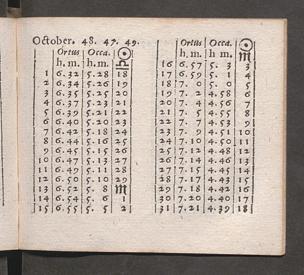 October. 48. 47. 49.
Ortus Occa. ☉
h. m. h. m. ♎
1 6.32 5.28 18
2 6.34 5.26 19
3 6.35 5.25 20
4 6.37 5.23 21
5 6.39 5.21 22
6 6.40 5.20 23
7 6.42 5.18 24
8 6.44 5.16 25
9 6.45 5.15 26
10 6.47 5.13 27
11 6.49 5.11 28
12 6.50 5.10 29
13 6.52 5. 8 ♏
14 6.54 5. 6 1
15 6.55 5. 5 2
Ortus Occa. ☉
h. m. h. m ♏
16 6.57 5. 3 3
17 6.59 5. 1 4
18 7. 0 5. 0 5
19 7. 2 4.58 6
20 7. 4 4.56 7
21 7. 5 4.55 8
22 7. 7 4.53 9
23 7. 9 4.51 10
24 7.10 4.50 11
25 7.12 4.48 12
26 7.14 4.46 13
27 7.15 4.45 14
28 7.17 4.43 15
29 7.18 4.42 16
30 7.20 4.40 17
31 7.21 4.39 18